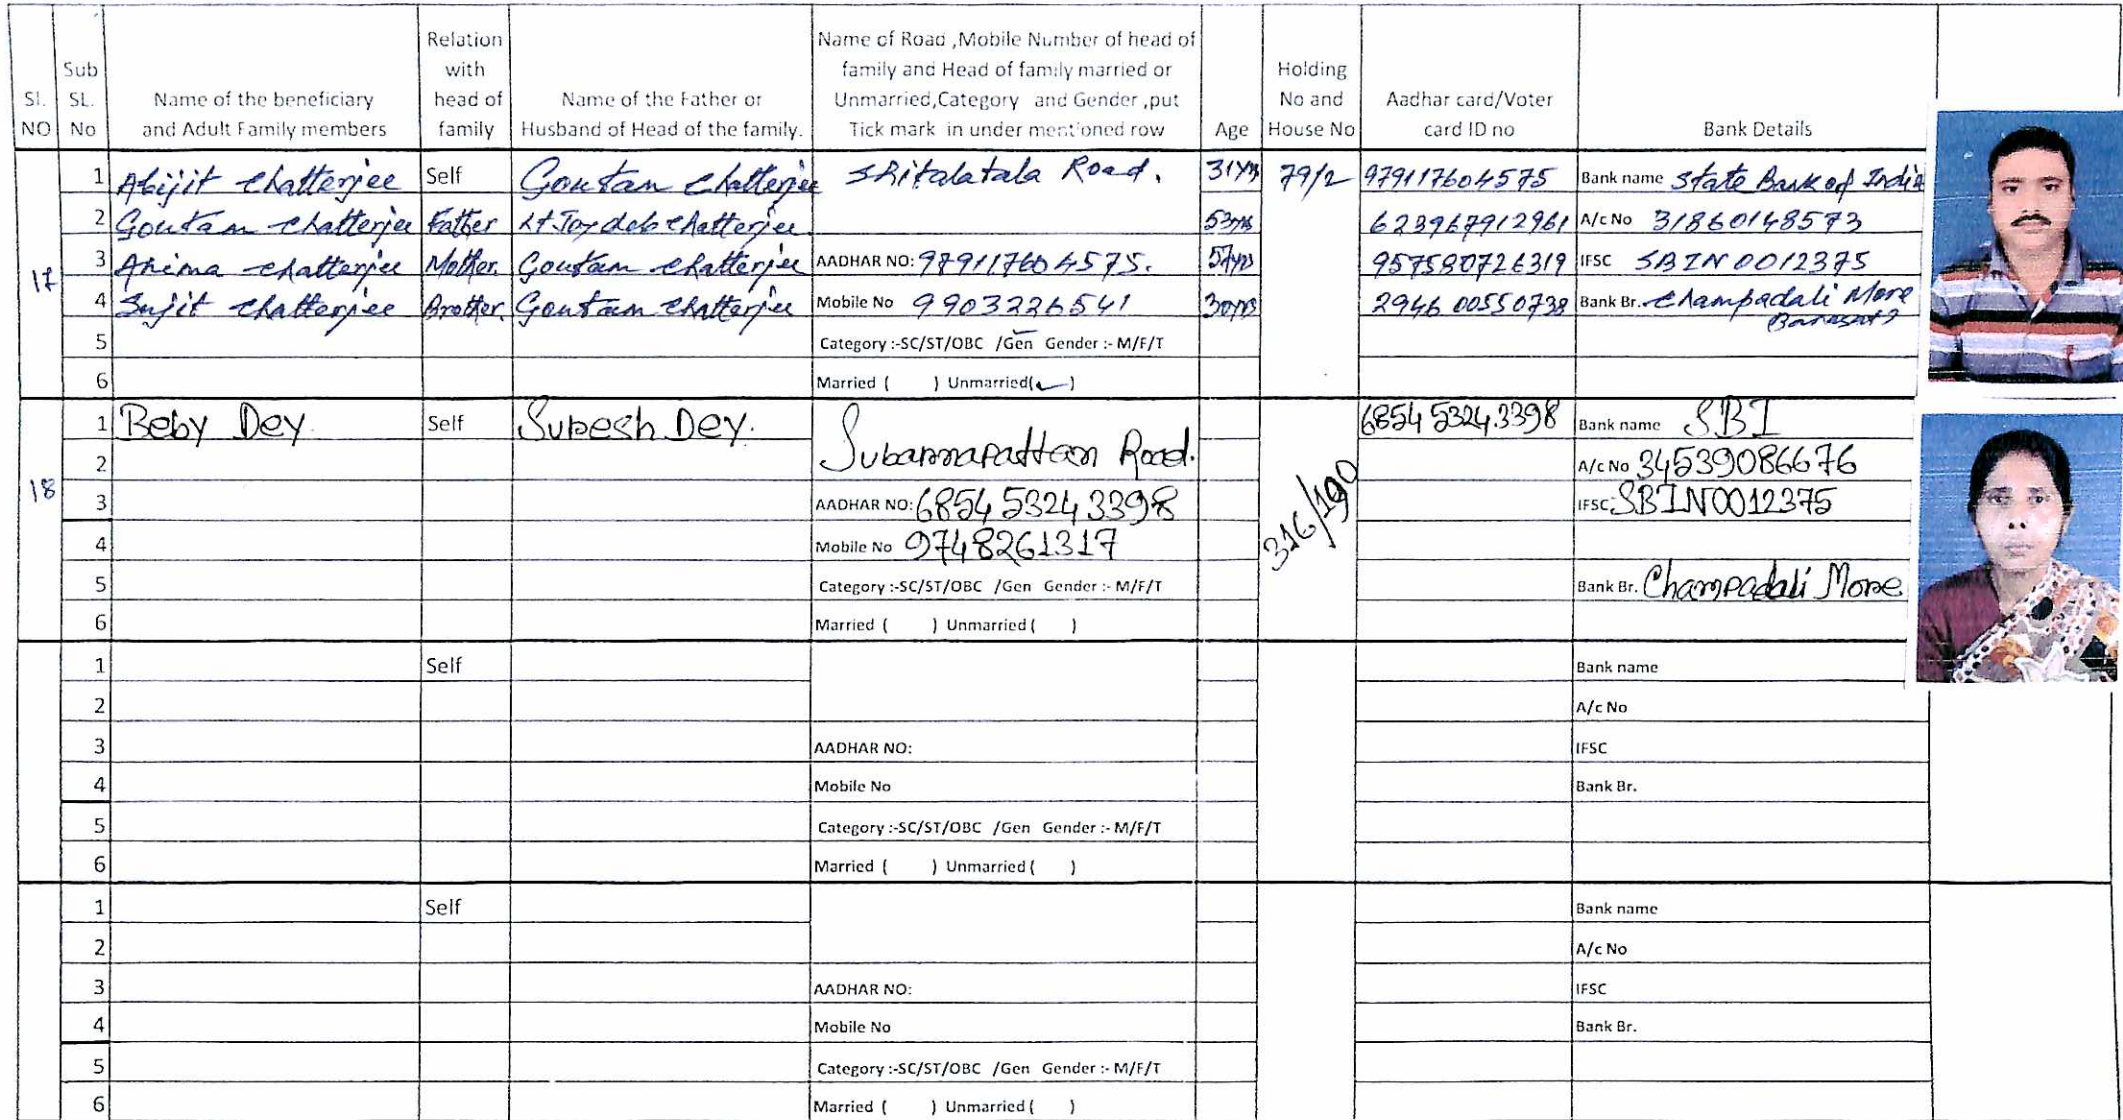 Sl. NO | Sub SL. No | Name of the beneficiary and Adult Family members | Relation with head of family | Name of the Father or Husband of Head of the family. | Name of Road ,Mobile Number of head of family and Head of family married or Unmarried,Category and Gender ,put Tick mark in under mentioned row | Age | Holding No and House No | Aadhar card/Voter card ID no | Bank Details
17
1 Abijit Chatterjee Self Goutam Chatterjee Shitalatala Road. 31yrs 79/2 979117604575 Bank name State Bank of India
2 Goutam Chatterjee Father Lt. Joydeb Chatterjee 53yrs 623967912961 A/c No 31860148573
3 Anima Chatterjee Mother. Goutam Chatterjee AADHAR NO: 979117604575. 957580726319 IFSC SBIN0012375
4 Sujit Chatterjee Brother. Goutam Chatterjee Mobile No 9903226541 30yrs 2946 00550738 Bank Br. Champadali More Barasat
5 Category :-SC/ST/OBC /Gen Gender :- M/F/T
6 Married ( ) Unmarried(✓)
18
1 Beby Dey Self Suresh Dey. Subarnapattan Road. 316/190 6854 5324 3398 Bank name SBI
2 A/c No 34539086676
3 AADHAR NO: 6854 5324 3398 IFSC: SBIN0012375
4 Mobile No 9748261317
5 Category :-SC/ST/OBC /Gen Gender :- M/F/T Bank Br. Champadali More
6 Married ( ) Unmarried ( )
1 Self Bank name
2 A/c No
3 AADHAR NO: IFSC
4 Mobile No Bank Br.
5 Category :-SC/ST/OBC /Gen Gender :- M/F/T
6 Married ( ) Unmarried ( )
1 Self Bank name
2 A/c No
3 AADHAR NO: IFSC
4 Mobile No Bank Br.
5 Category :-SC/ST/OBC /Gen Gender :- M/F/T
6 Married ( ) Unmarried ( )